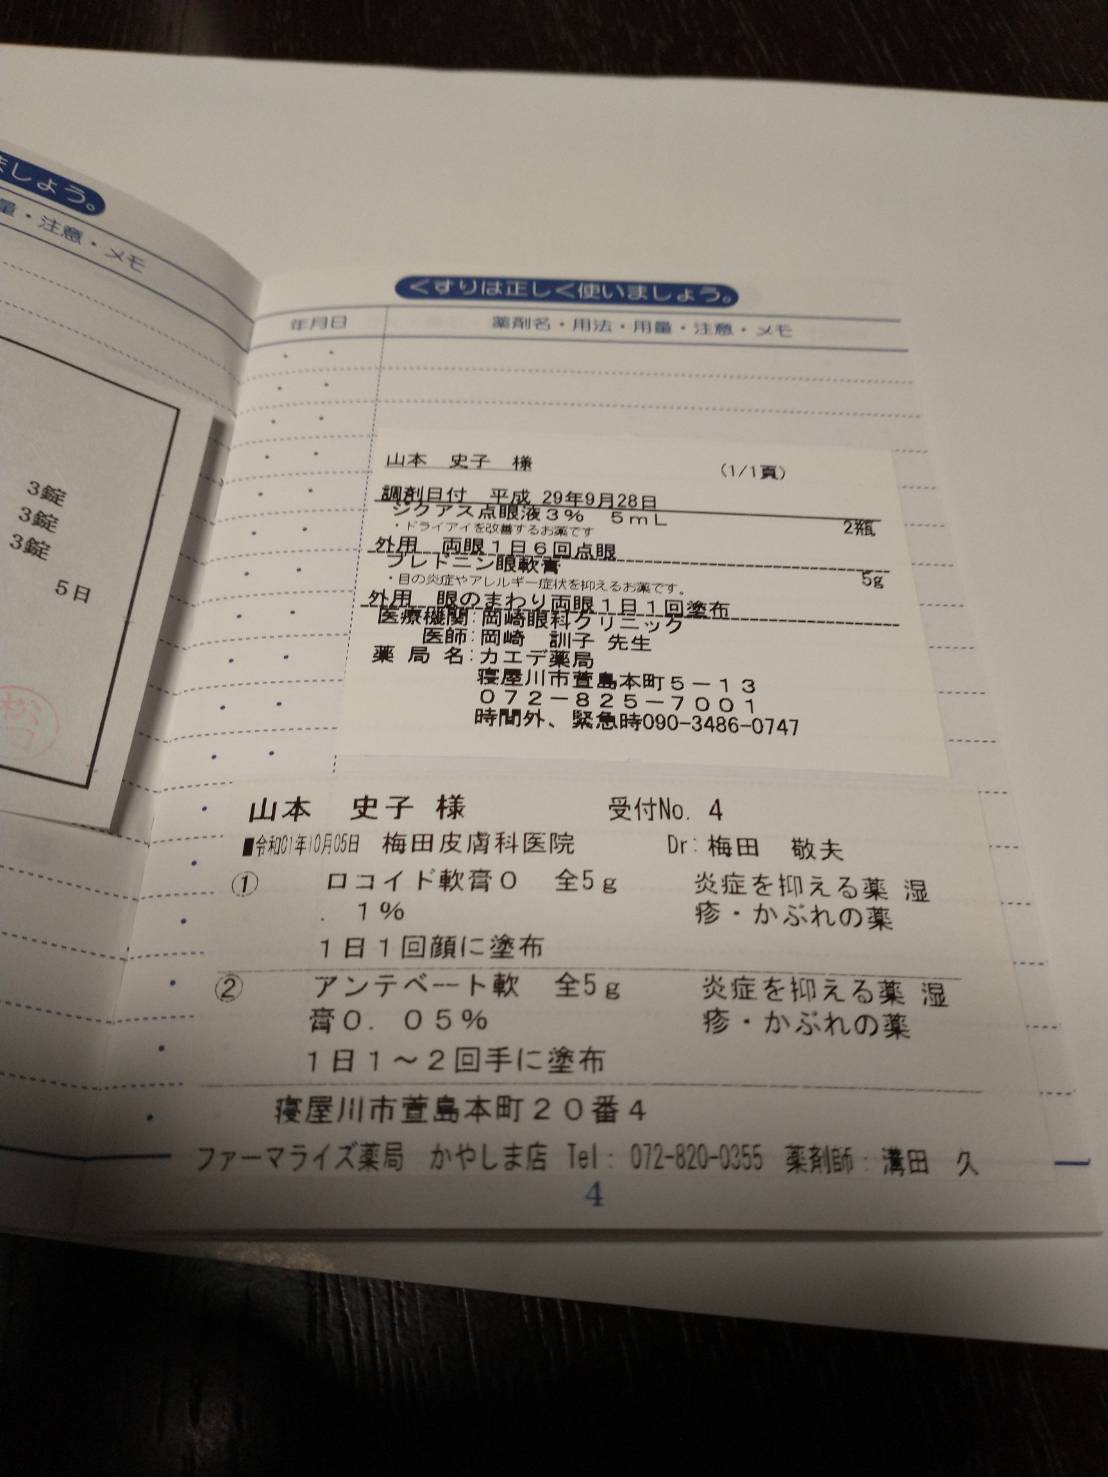 ましょう。
量・注意・メモ
3錠
3錠
3錠
5日
くすりは正しく使いましょう。
年月日　薬剤名・用法・用量・注意・メモ
山本　史子　様　（1/1頁）
調剤日付　平成 29年9月28日
ジクアス点眼液３％　５ｍＬ　2瓶
・ドライアイを改善するお薬です
外用　両眼１日６回点眼
プレドニン眼軟膏　5g
・目の炎症やアレルギー症状を抑えるお薬です。
外用　眼のまわり両眼１日１回塗布
医療機関：岡崎眼科クリニック
医師：岡崎　訓子 先生
薬 局 名：カエデ薬局
寝屋川市萱島本町５－１３
０７２－８２５－７００１
時間外、緊急時090-3486-0747
山本　史子 様　受付No. 4
■令和01年10月05日　梅田皮膚科医院　Dr：梅田　敬夫
①　ロコイド軟膏０　全5ｇ　炎症を抑える薬 湿
．１％　疹・かぶれの薬
１日１回顔に塗布
②　アンテベート軟　全5ｇ　炎症を抑える薬 湿
膏０．０５％　疹・かぶれの薬
１日１～２回手に塗布
寝屋川市萱島本町２０番４
ファーマライズ薬局　かやしま店　Tel： 072-820-0355　薬剤師：溝田　久
4